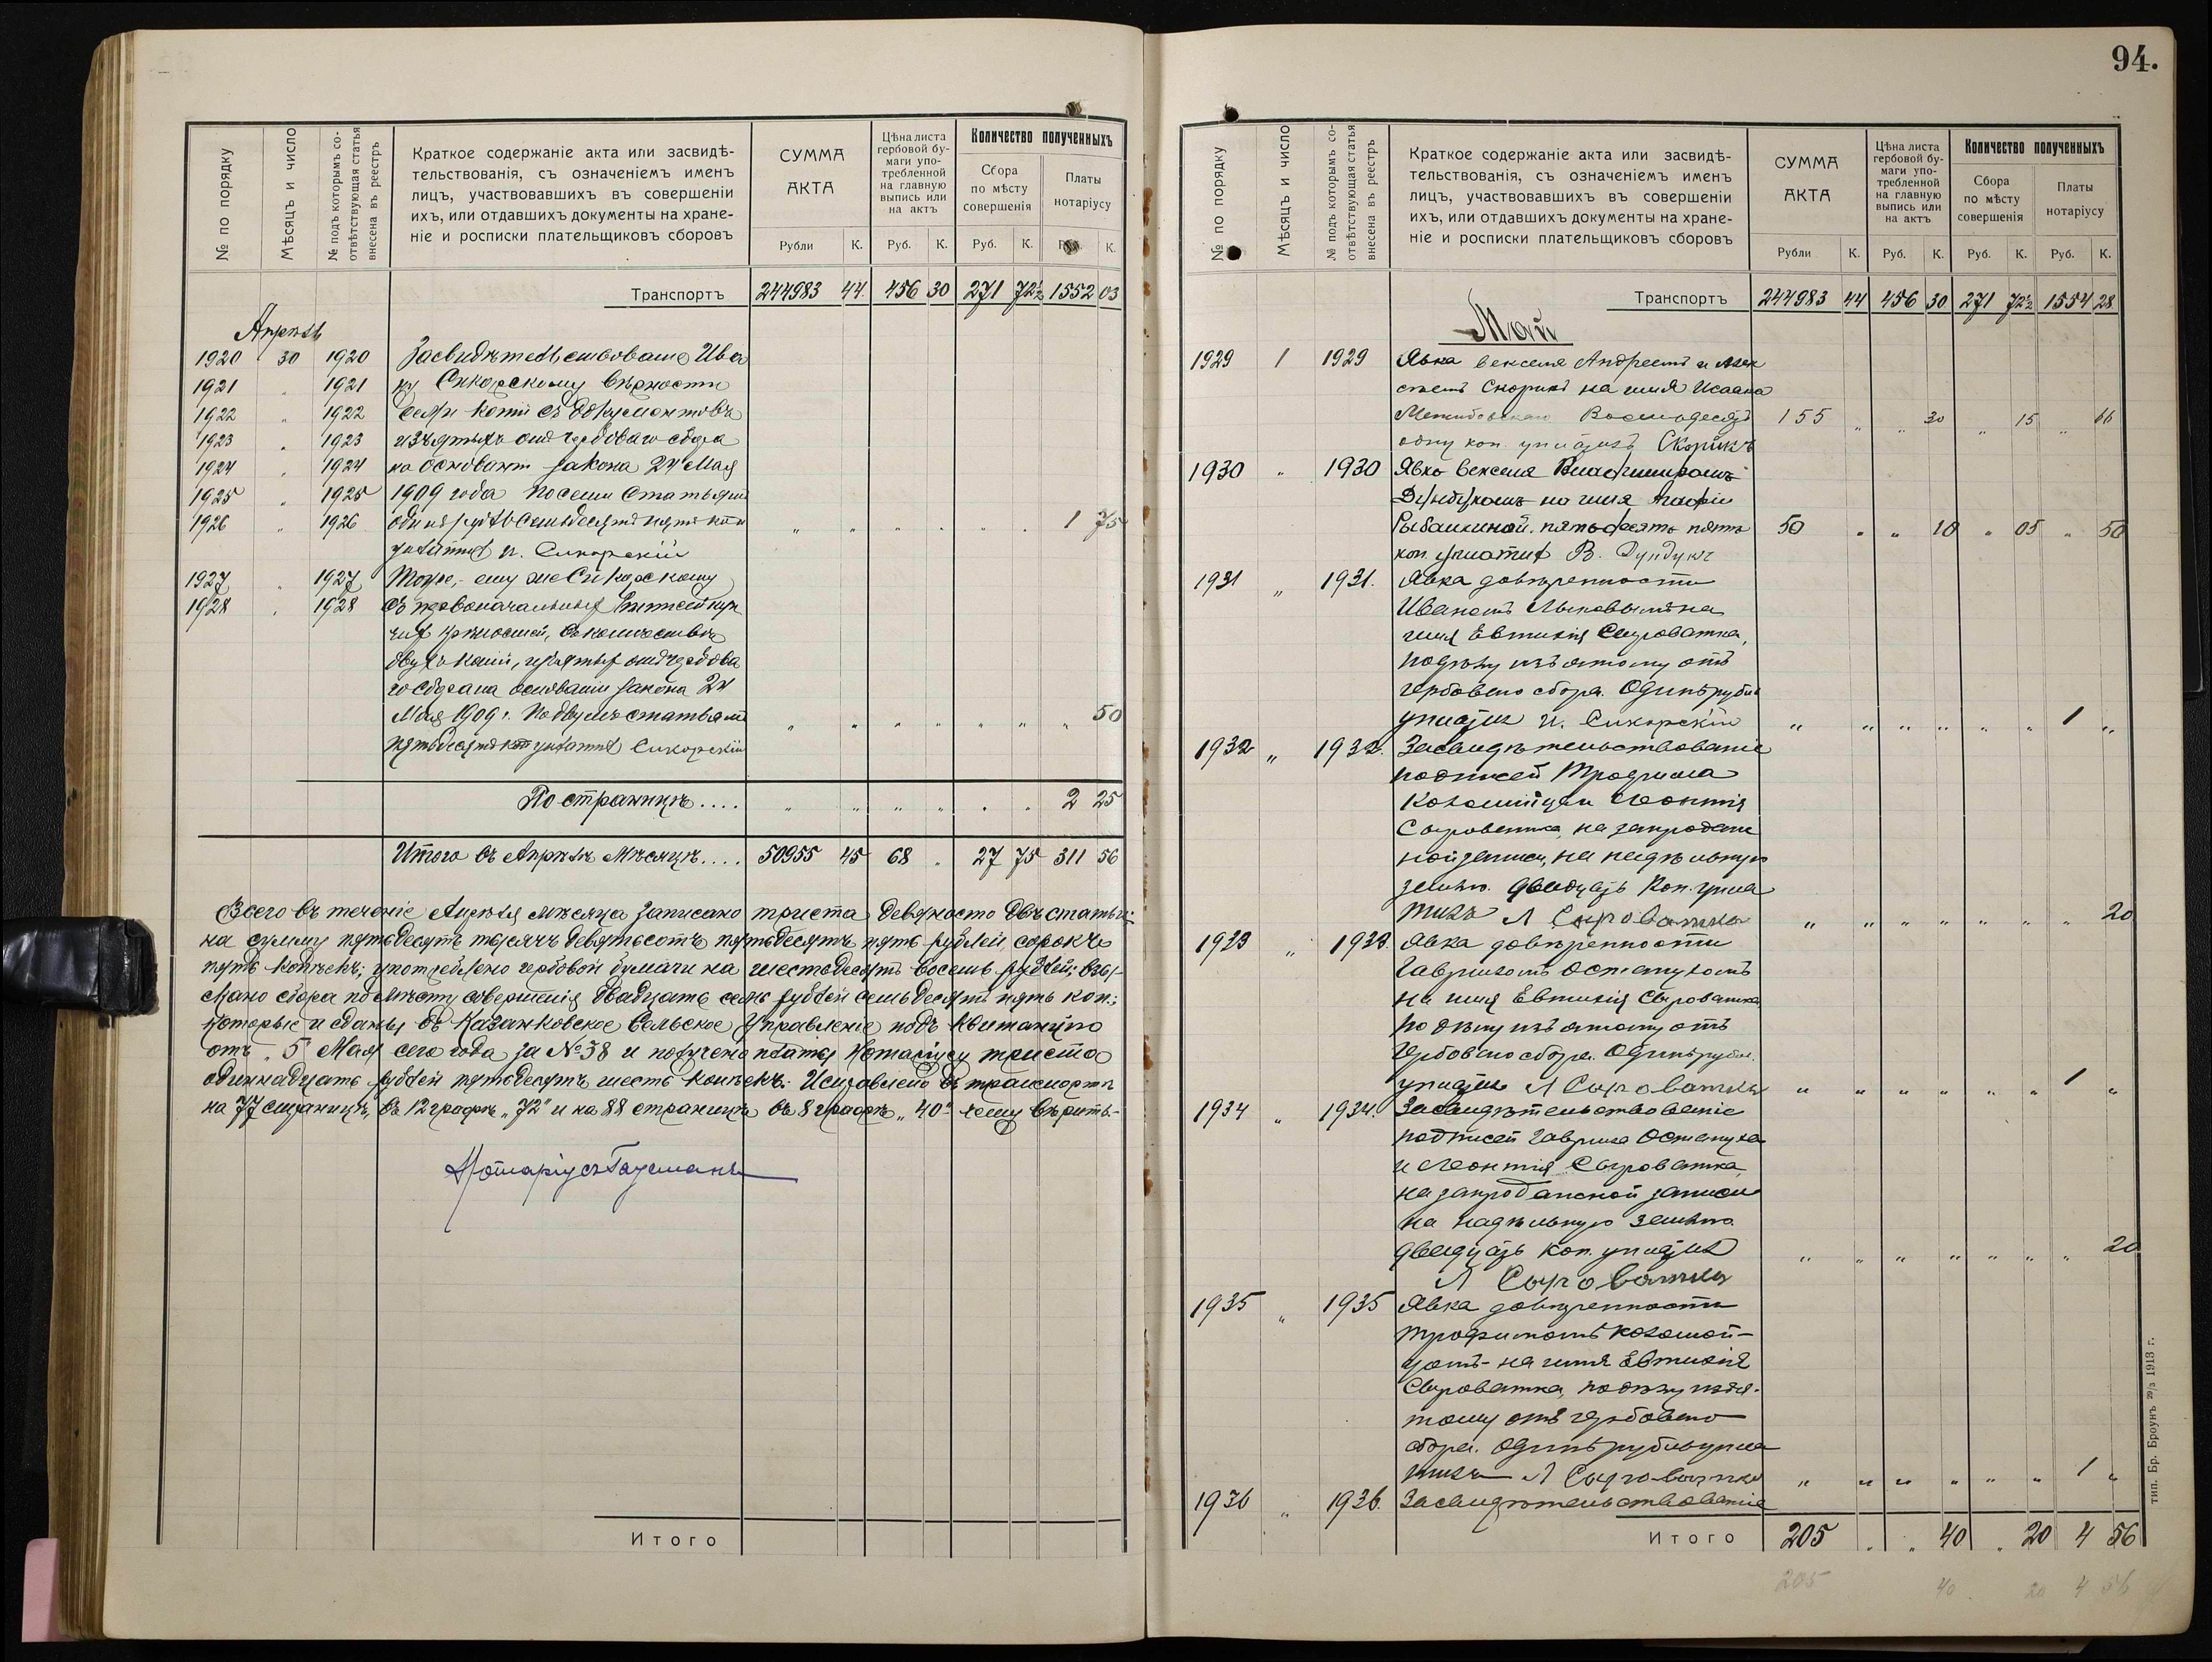 94.
№ по порядку
Мѣсяцъ и число
№ подъ которымъ со-
отвѣтствующая статья
внесена въ реестръ
Краткое содержаніе акта или засвидѣ-
тельствованія, съ означеніемъ именъ
лицъ, участвовавшихъ въ совершеніи
ихъ, или отдавшихъ документы на хране-
ніе и росписки плательщиковъ сборовъ
СУММА
АКТА
Рубли К.
Цѣна листа
гербовой бу-
маги упо-
требленной
на главную
выпись или
на актъ
Руб. К.
Количество полученныхъ
Сбора
по мѣсту
совершенія
Руб. К.
Платы
нотаріусу
К.
Транспортъ 244983 44 456 30 271 72½ 1552 03
Апрѣль
1920 30 1920 Засвидѣтельствованіе Ива
1921 " 1921 ну Сикорскому вѣрности
1922 " 1922 семи копій съ документовъ
1923 " 1923 изъятыхъ отъ гербоваго сбора
1924 " 1924 на основаніи закона 24 Мая
1925 " 1925 1909 года по семи статьямъ
1926 " 1926 одинъ рубль семьдесятъ пять коп " " " " " " 1 75
уплатилъ И. Сикорскій
1927 " 1927 Тоже, ему же Сикорскому
1928 " 1928 съ первоначальныхъ
чихъ крѣпостей, въ количествѣ
двухъ копій, изъятыхъ отъ гербова
го сбора на основаніи закона 24
Мая 1909 г. По двумъ статьямъ " " " " " " " 50
пятьдесятъ коп уплатилъ Сикорскій
По страницѣ.... " " " " " " 2 25
Итого въ Апрѣлѣ Мѣсяцѣ.... 50955 45 68 " 27 75 311 56
Всего въ теченіе Апрѣля мѣсяца записано триста девяносто двѣ статьи:
на сумму пятьдесятъ тысячъ девятьсотъ пятьдесятъ пять рублей сорокъ
пять копѣекъ; употреблено гербовой бумаги на шестьдесятъ восемь рублей; взы-
мано сбора по мѣсту совершенія двадцать семь рублей семьдесятъ пять коп.;
которые и сданы въ Казанковское Сельское Управленіе подъ квитанцію
отъ „5" Мая сего года за №38 и получено платы Нотаріусу триста
одиннадцать рублей пятьдесятъ шесть копѣекъ. Исправлено въ транспортѣ
на 77 страницѣ, въ 12 графѣ „72" и на 88 страницѣ въ 8 графѣ „40" чему вѣрить.-
Нотаріусъ Гаусманъ
Итого
№ по порядку
Мѣсяцъ и число
№ подъ которымъ со-
отвѣтствующая статья
внесена въ реестръ
Краткое содержаніе акта или засвидѣ-
тельствованія, съ означеніемъ именъ
лицъ, участвовавшихъ въ совершеніи
ихъ, или отдавшихъ документы на хране-
ніе и росписки плательщиковъ сборовъ
СУММА
АКТА
Рубли К.
Цѣна листа
гербовой бу-
маги упо-
требленной
на главную
выпись или
на актъ
Руб. К.
Количество полученныхъ
Сбора
по мѣсту
совершенія
Руб. К.
Платы
нотаріусу
Руб. К.
Транспортъ 244983 44 456 30 271 72½ 1554 28
Май
1929 1 1929 Явка векселя Андреемъ и Алек
сѣемъ Скорикъ на имя Исаака
Восемьдесятъ 155 " " 30 " 15 " 66
одну коп. Скорикъ
1930 " 1930 Явка векселя Владимиромъ
Дундукомъ на имя Агафіи
Рыбалкиной. пятьдесятъ пять 50 " " 10 " 05 " 50
коп. уплатилъ В. Дундукъ
1931 " 1931. Явка довѣренности
Иваномъ Лысковымъ на
имя Евтихія Сыроватка,
по дѣлу изъятому отъ
гербоваго сбора. Одинъ рубль
уплатилъ И. Сикорскій " " " " " " 1 "
1932 " 1932. Засвидѣтельствованіе
подписей Трофима
Коломійца и Леонтія
Сыроватка, на запродаж
ной записи, на надѣльную
землю. двадцать коп. упла
тилъ Л Сыроватка " " " " " " " 20
1933 " 1933. Явка довѣренности
Гавриломъ Остапукомъ
на имя Евтихія Сыроватка
по дѣлу изъятому отъ
гербоваго сбора. Одинъ рубль.
уплатилъ Л Сыроватка " " " " " " 1 "
1934 " 1934. Засвидѣтельствованіе
подписей Гаврила Остапука
и Леонтія Сыроватка,
на запродажной записи
на надѣльную землю.
двадцать коп. уплатилъ " " " " " " " 20
Л Сыроватка
1935 " 1935 Явка довѣренности
Трофимомъ Коломой-
цомъ на имя Евтихія
Сыроватка, по дѣлу изъя-
тому отъ гербоваго
сбора. Одинъ рубль упла
тилъ Л Сыроватка " " " " " " 1 "
1936 " 1936. Засвидѣтельствованіе
Итого 205 " " 40 " 20 4 56
205 40 20 4 56
тип. Бр. Броунъ 29/3 1913 г.